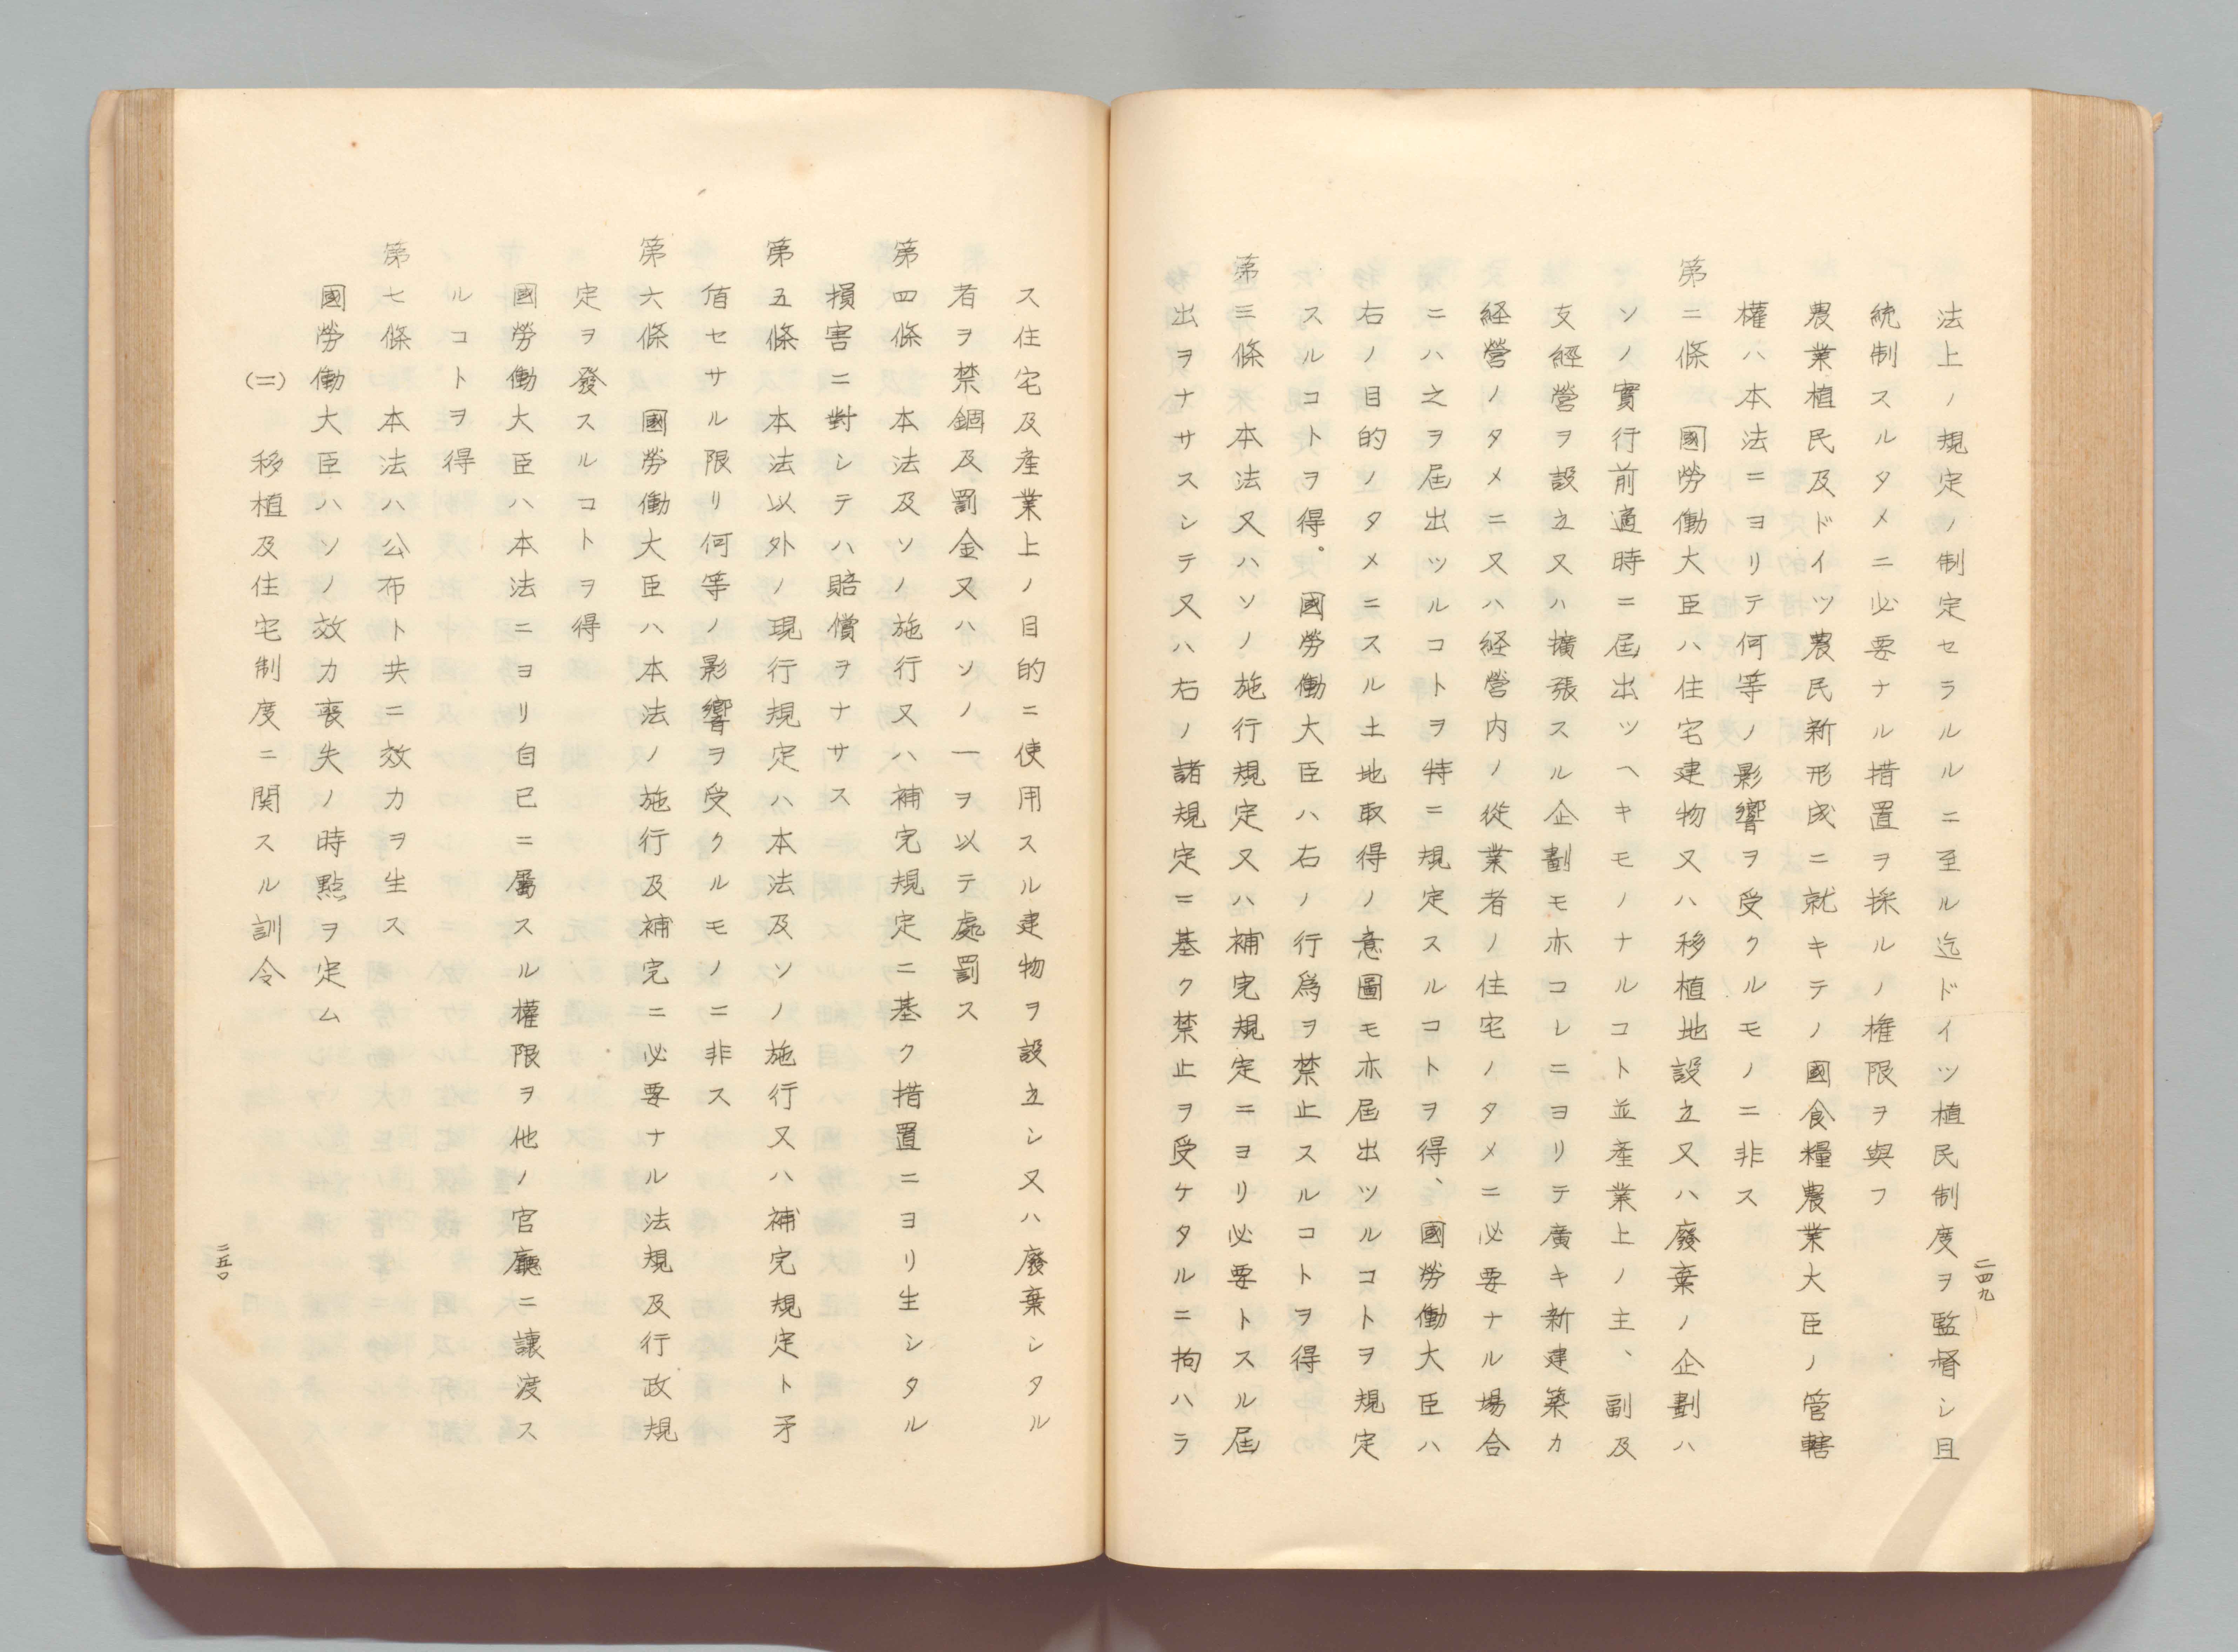 法上ノ規定ノ制定セラルルニ至ル迄ドイツ植民制度ヲ監督シ且
統制スルタメニ必要ナル措置ヲ採ルノ権限ヲ與フ
農業植民及ドイツ農民新形成ニ就キテノ國食糧農業大臣ノ管轄
權ハ本法ニヨリテ何等ノ影響ヲ受クルモノニ非ス
第二條 國勞働大臣ハ住宅建物又ハ移植地設立又ハ廢棄ノ企劃ハ
ソノ實行前適時ニ屆出ツヘキモノナルコト並産業上ノ主、副及
支經營ヲ設立又ハ擴張スル企劃モ亦コレニヨリテ廣キ新建築カ
経營ノタメニ又ハ経營内ノ從業者ノ住宅ノタメニ必要ナル場合
ニハ之ヲ屆出ツルコトヲ特ニ規定スルコトヲ得、國勞働大臣ハ
右ノ目的ノタメニスル土地取得ノ意圖モ亦屆出ツルコトヲ規定
スルコトヲ得。國勞働大臣ハ右ノ行爲ヲ禁止スルコトヲ得
第三條 本法又ハソノ施行規定又ハ補完規定ニヨリ必要トスル屆
出ヲナサスシテ又ハ右ノ諸規定ニ基ク禁止ヲ受ケタルニ拘ハラ
二四九
ス住宅及産業上ノ目的ニ使用スル建物ヲ設立シ又ハ廢棄シタル
者ヲ禁錮及罰金又ハソノ一ヲ以テ處罰ス
第四條 本法及ソノ施行又ハ補完規定ニ基ク措置ニヨリ生シタル
損害ニ對シテハ賠償ヲナサス
第五條 本法以外ノ現行規定ハ本法及ソノ施行又ハ補完規定ト矛
値セサル限リ何等ノ影響ヲ受クルモノニ非ス
第六條 國勞働大臣ハ本法ノ施行及補完ニ必要ナル法規及行政規
定ヲ發スルコトヲ得
國勞働大臣ハ本法ニヨリ自己ニ屬スル權限ヲ他ノ官廳ニ讓渡ス
ルコトヲ得
第七條 本法ハ公布ト共ニ效力ヲ生ス
國勞働大臣ハソノ效力喪失ノ時點ヲ定ム
(二) 移植及住宅制度ニ関スル訓令
二五〇